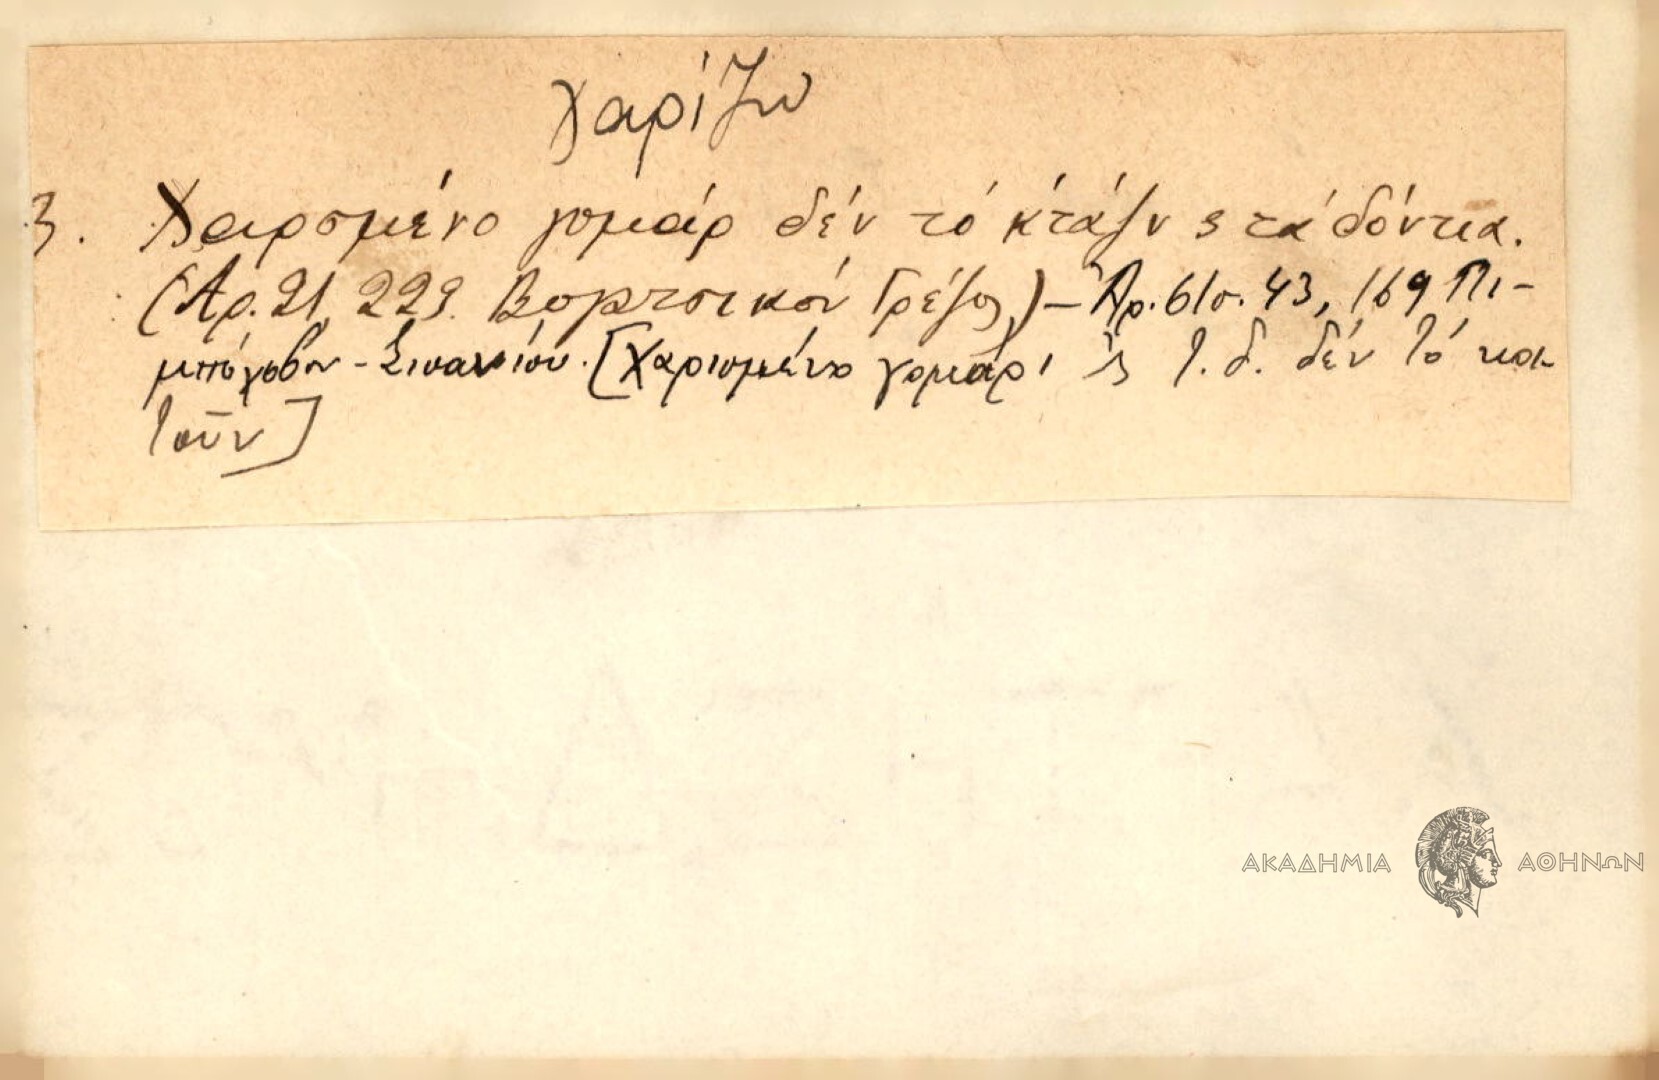 χαρίζω
3. Χαρσμένο γομάρ δέν τό κτάζν ς τά δόντια.
(Αρ. 21, 223. Βογατσικόν Γρέζος) – Ἀρ. 61 σ. 43, 169 Πι-
- Σισανίου. [Χαρισμένο γομάρι 'ς τ. δ. δέν τό κοι-
τοῦν]
ΑΚΑΔΗΜΙΑ ΑΘΗΝΩΝ